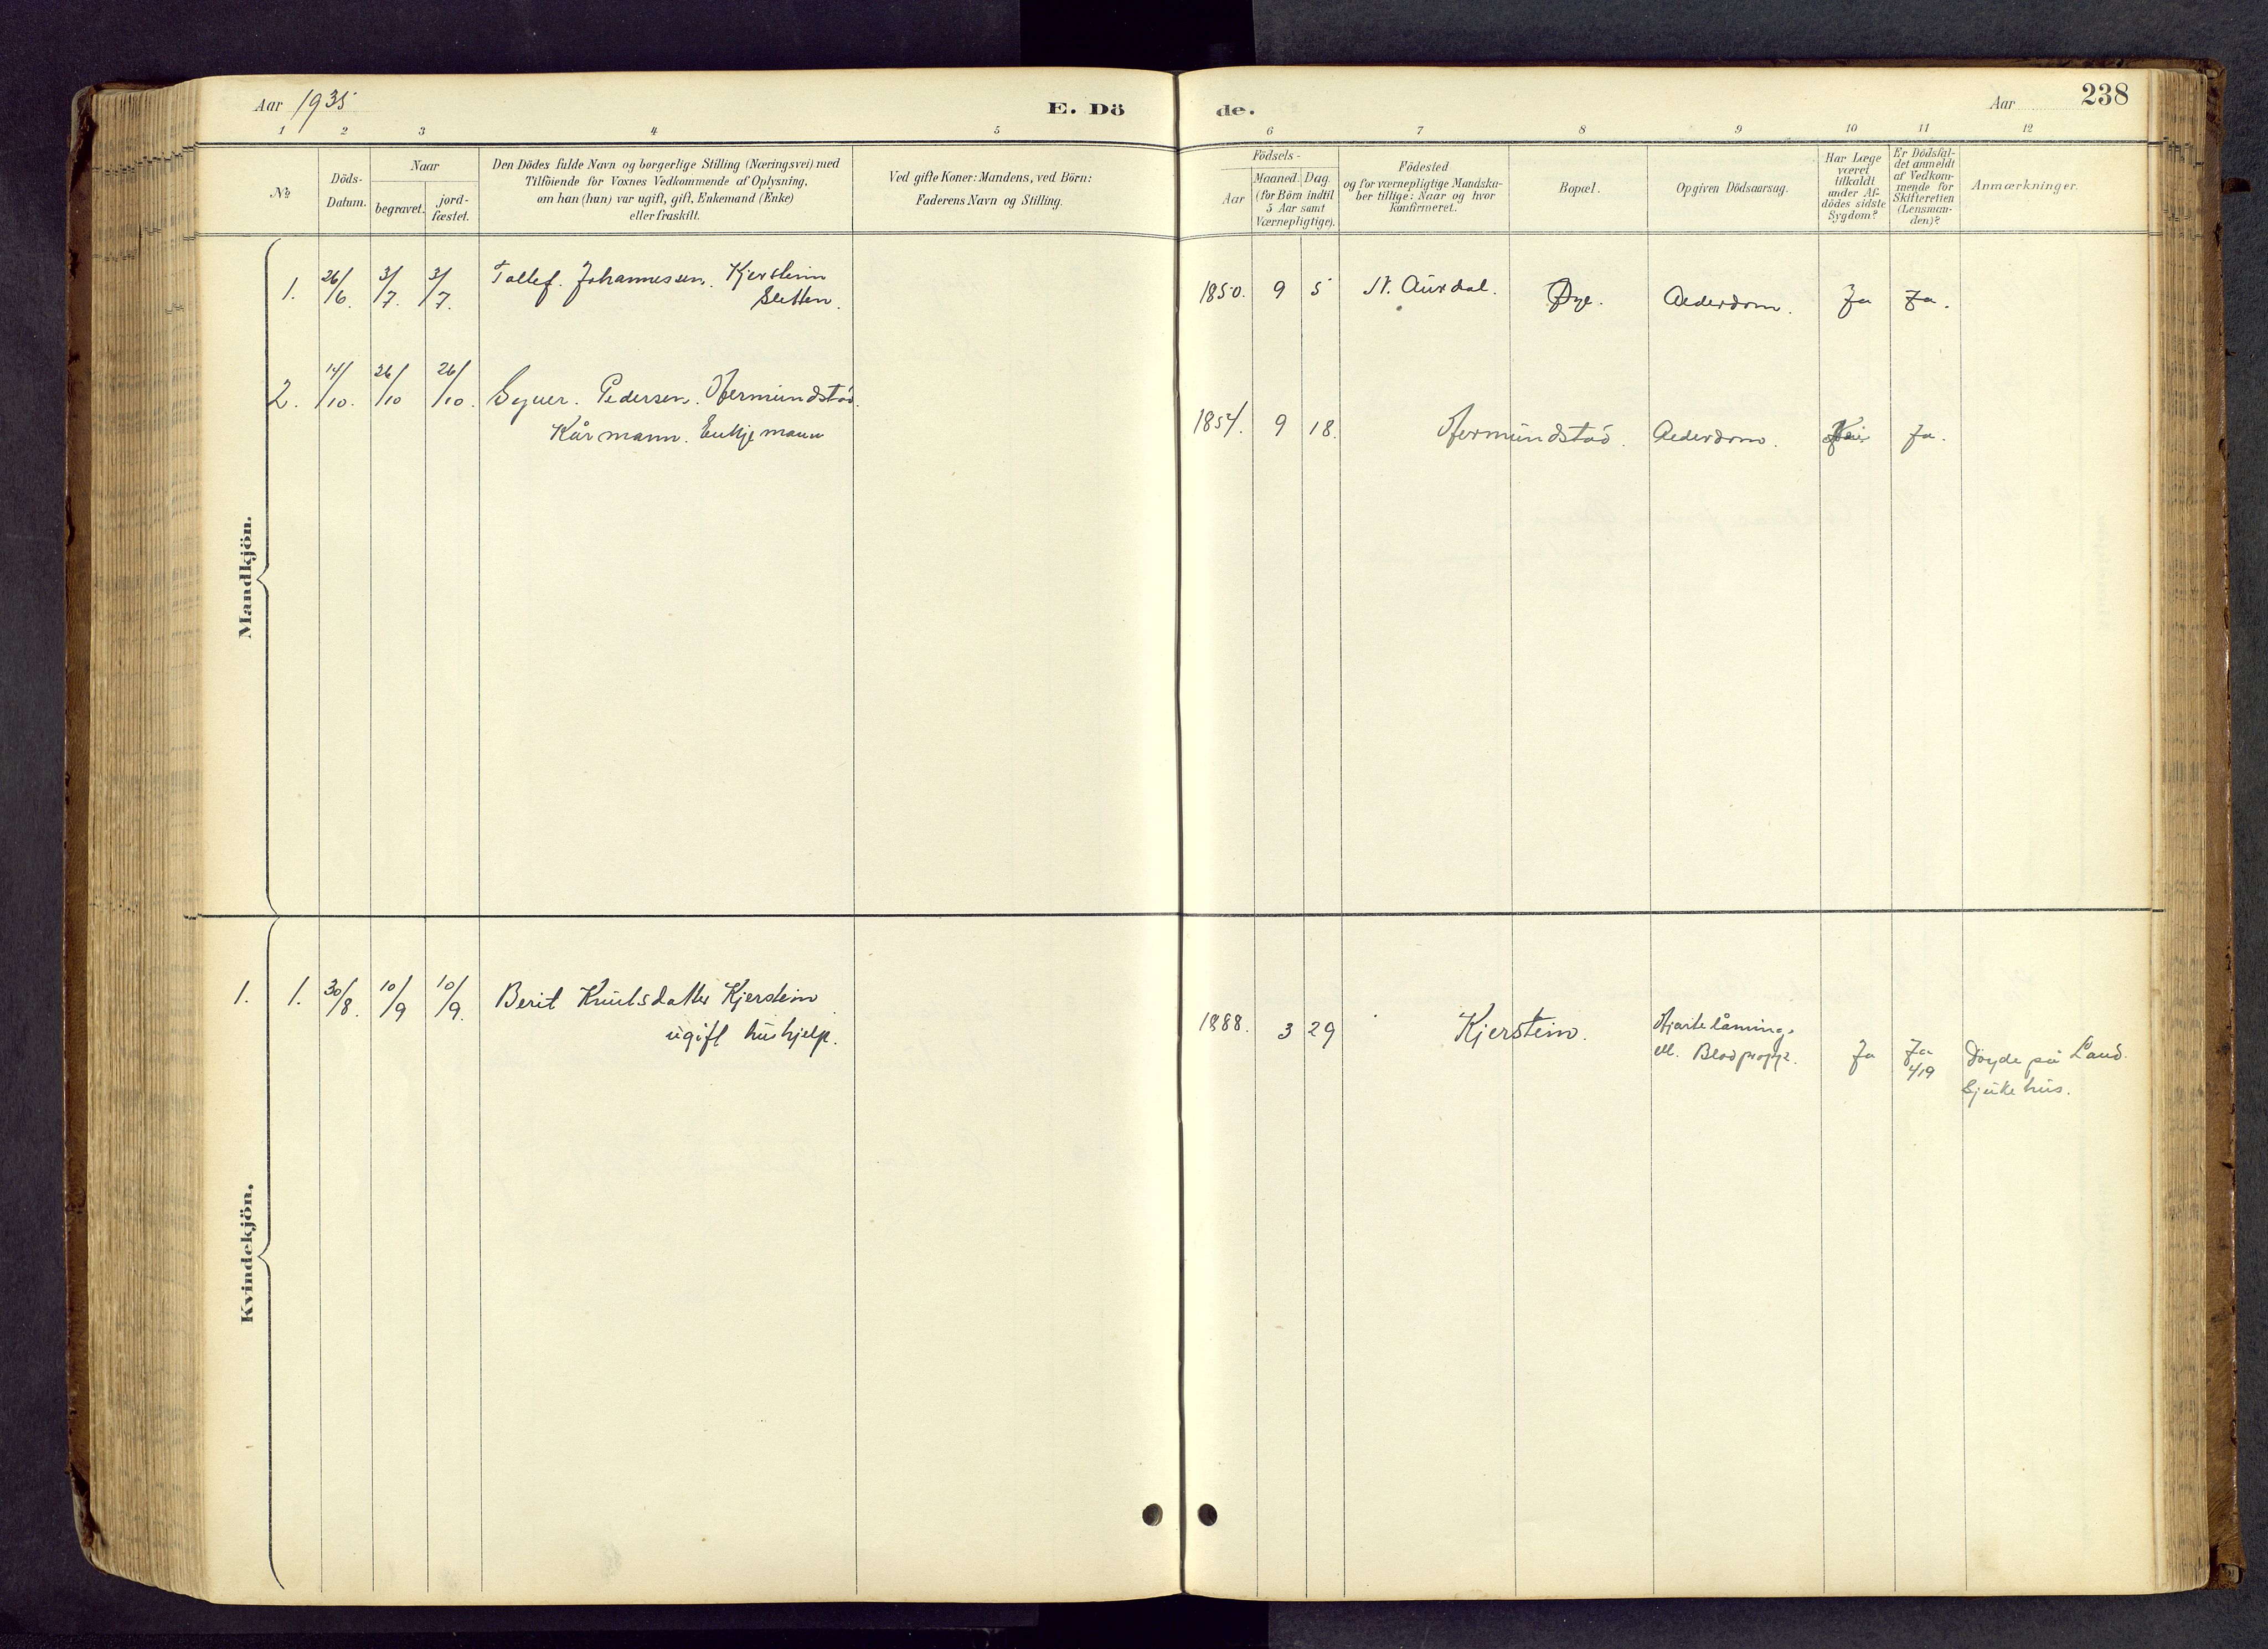 Aar 1935
E. Dö
de.
Aar
238
1 2 3 4 5 6 7 8 9 10 11 12
№
Döds-
Datum.
Naar
begravet.
jord-
fæstet.
Den Dödes fulde Navn og borgerlige Stilling (Næringsvei) med
Tilföiende for Voxnes Vedkommende af Oplysning,
om han (hun) var ugift, gift, Enkemand (Enke)
eller fraskilt.
Ved gifte Koner: Mandens, ved Börn:
Faderens Navn og Stilling.
Födsels-
Aar
Maaned. Dag.
(for Börn indtil
5 Aar samt
Værnepligtige).
Födested
og for værnepligtige Mandska-
ber tillige: Naar og hvor
konfirmeret.
Bopæl.
Opgiven Dödsaarsag.
Har Læge
været
tilkaldt
under Af-
dödes sidste
Sygdom?
Er Dödsfal-
det anmeldt
af Vedkom-
mende for
Skifteretten
(Lensman-
den)?
Anmærkninger.
Mandkjön.
1. 26/6. 3/7. 3/7. Tollef. Johannessen. Kjerstein
Sletten.
1850. 9 5 N. Aurdal. Øye. Alderdom. Ja Ja.
2. 14/10. 26/10 26/10. Pedersen. Hermundstad.
Kårmann. Enkjemann
1854. 9 18. Hermundstad. Alderdom. Ja.
Kvindekjön.
1. 1. 30/8. 10/9 10/9. Berit Knutsdatter Kjerstein
ugift hushjelp.
1888. 3 29 Kjerstein. Hjartelåming.
ell. Blodpropp. Ja Ja
4/9
Døyde på Land.
Sjukehus.